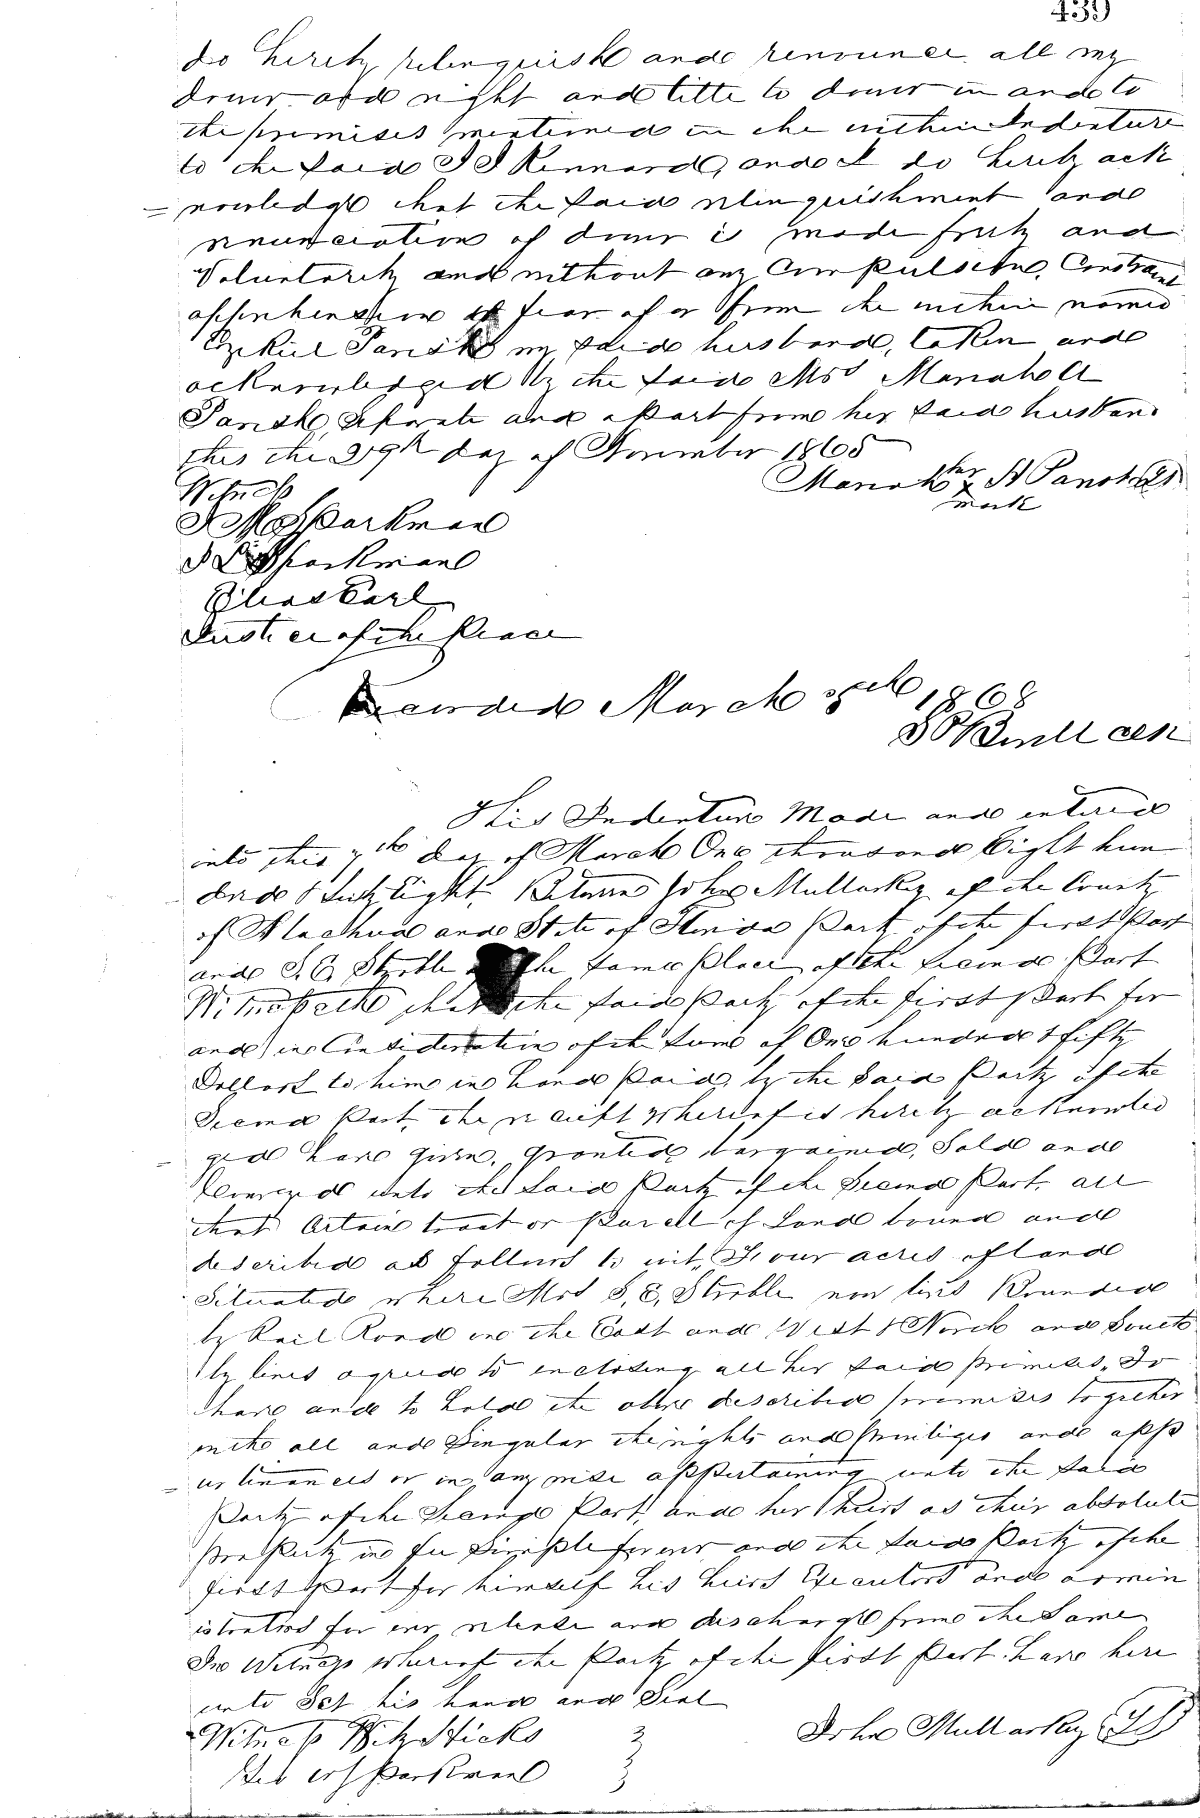 439
do hereby relinquish and renounce all my
dower and right and title to dower in and to
the premises mentioned in the within Indenture
to the said Kennard, and I do hereby ack
= nowledge that the said relinquishment and
renunciation of dower is made freely and
Voluntarily and without any Compulsion, Constraint
apprehension or fear of or from the within named
Ezekiel Parish my said husband, taken and
acknowledged by the said Mrs Mariah A
Parish, Separate and apart from her said husban
this the 29th day of November 1865
Mariah her x mark A Parish LS
Witness
J M Sparkman
Sparkman
Elias Earl
Justice of the Peace
Recorded March 5th 1868
Clk
This Indenture Made and entered
into this 7th day of March One thousand Eight hun
dred & Sixty Eight. Between John Mullarkey of the County
of Alachua and State of Florida Party of the first Part
and S. E. Stroble of the same place of the Second Part
Witnesseth that the said Party of the first Part for
and in Consideration of the sum of One hundred & fifty
Dollars to him in hand Paid, by the said Party of the
Second Part, the receipt whereof is hereby acknowled
= ged have given, granted, bargained, Sold and
Conveyed unto the said Party of the Second Part, all
that Certain tract or parcell of Land bound and
described as follows to wit, Four acres of land
Situated where Mrs S. E. Stroble now lives Bounded
by Rail Road on the East and West & North and South
by lines agreed to enclosing all her said premises, To
have and to hold the above described premises together
with all and Singular the rights and priviliges and app
= urtinances or in any wise appertaining unto the said
Party of the Second Part, and her heirs as their absolute
Property in fee Simple forever and the said Party of the
first Part for himself his heirs Executors and admin
istrators for ever release and discharge from the Same
In Witness whereof the Party of the first Part have here
unto Set his hand and Seal
Witness Hicks
John Mullarkey LS
Parkman